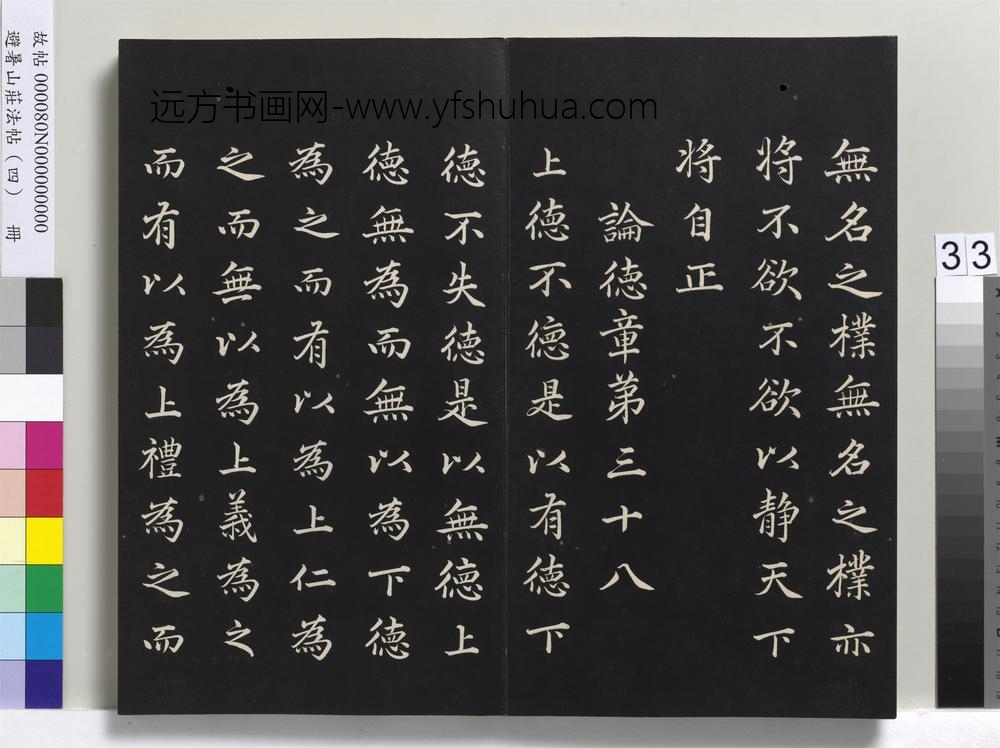 無名之樸無名之樸亦
将不欲不欲以静天下
将自正
論徳章第三十八
上徳不徳是以有徳下
徳不失徳是以無徳上
徳無為而無以為下徳
為之而有以為上仁為
之而無以為上義為之
而有以為上禮為之而
远方书画网-www.yfshuhua.com
故帖 000080N000000000
避暑山莊法帖（四） 冊
33